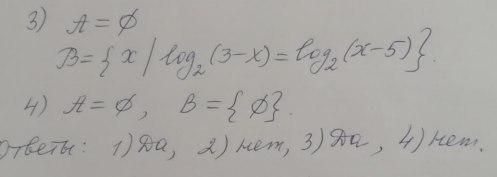 3) A = ∅
B = { x | log₂(3-x) = log₂(x-5) }.
4) A = ∅, B = { ∅ }.
Ответы: 1) Да, 2) нет, 3) Да, 4) нет.